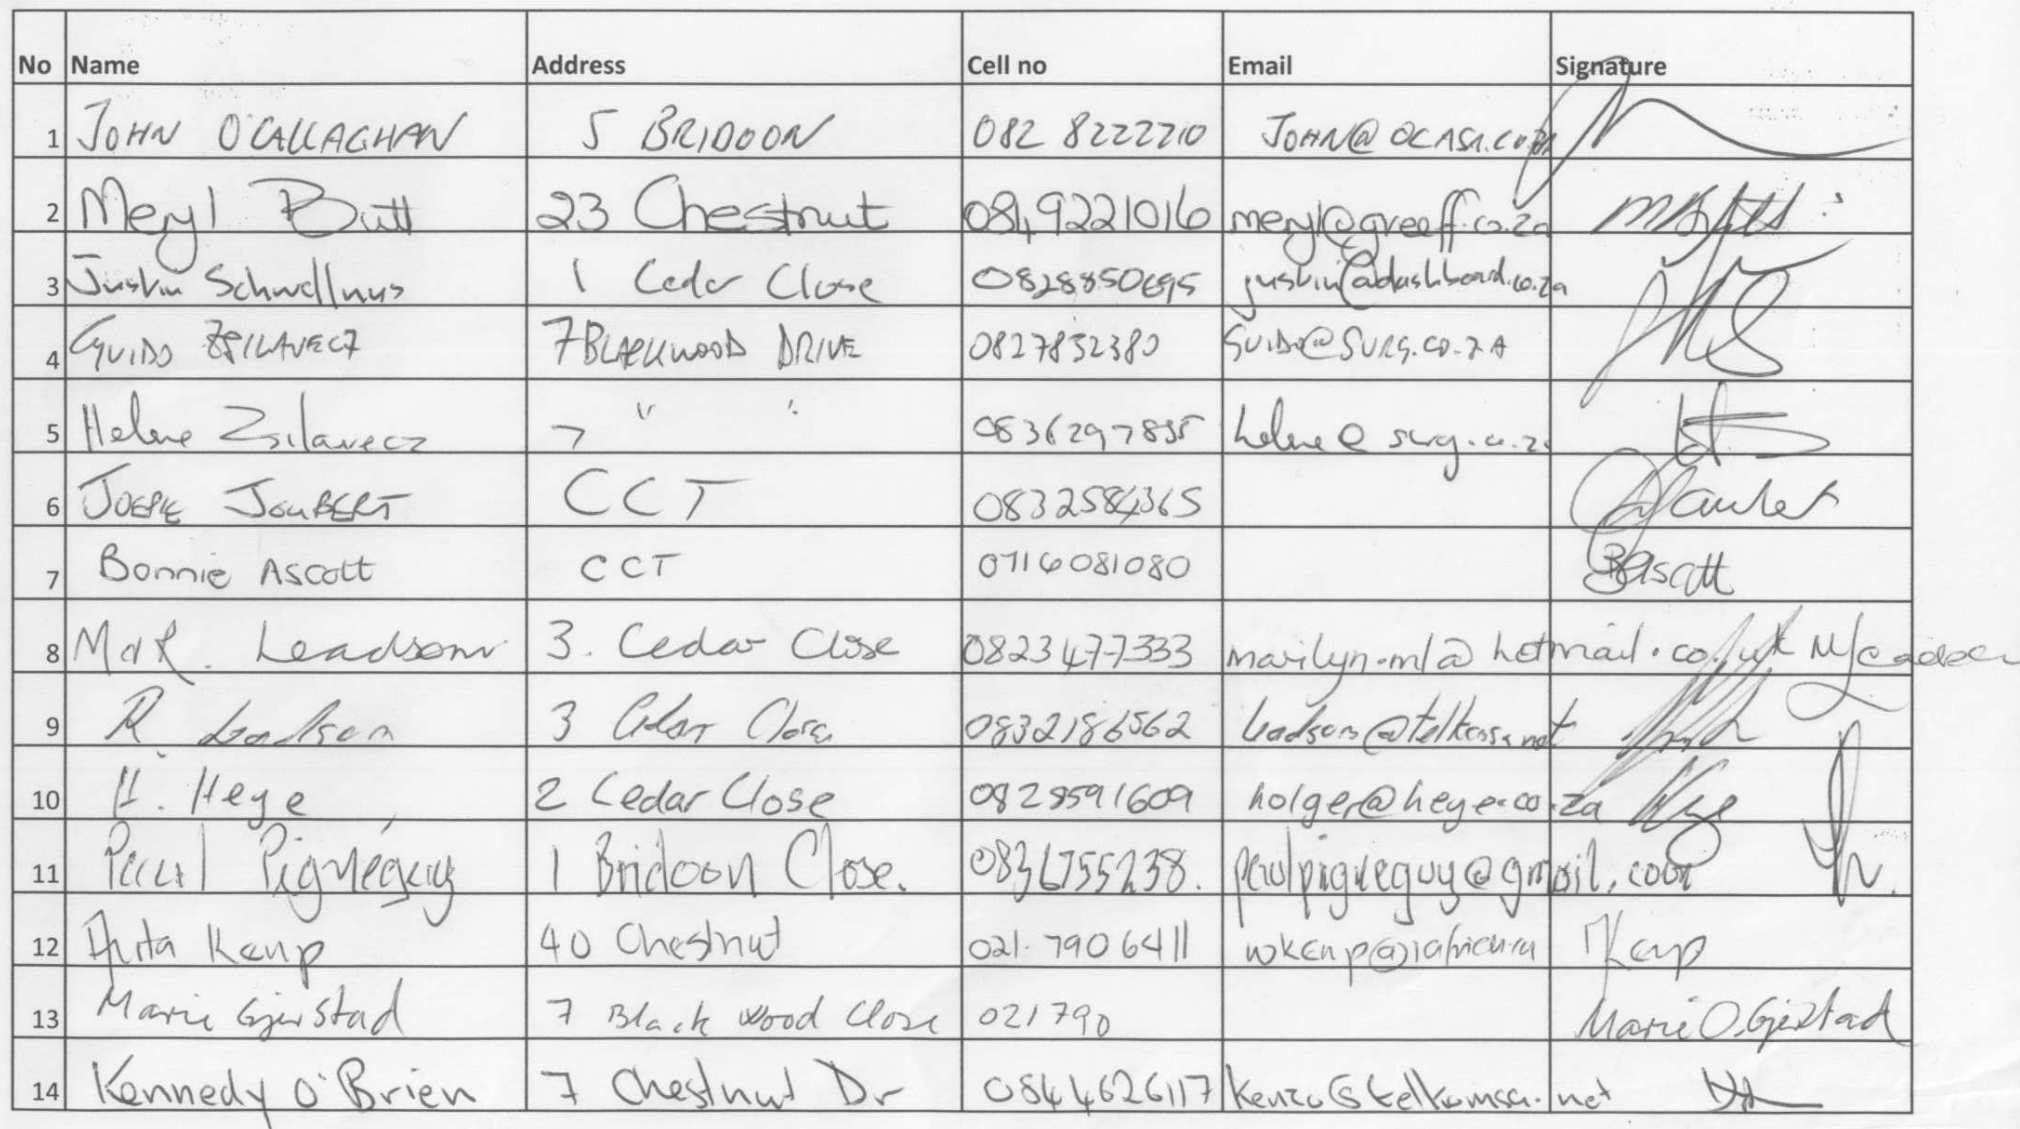 No Name Address Cell no Email Signature
1 JOHN O'CALLAGHAN 5 BRIDOON 082 8222210 JOHN@OCASA.CO.ZA
2 Meryl Butt 23 Chestnut 0849221016 meryl@greeff.co.za
3 Justin Schwellnus 1 Cedar Close 0828850695 justin@dashboard.co.za
4 GUIDO ZSILAVECZ 7 BLACKWOOD DRIVE 0827832380 GUIDO@SURG.CO.ZA
5 Helene Zsilavecz 7 " " 0836297835 helene@surg.co.za
6 JOEPIE JOUBERT CCT 0832584365
7 Bonnie Ascott CCT 0716081080 BAscott
8 Leadsom 3. Cedar Close 0823477333 marilyn.ml@hotmail.co.uk
9 R. Leadsom 3 Cedar Close 0832186562 leadsom@telkomsa.net
10 H. Heye 2 Cedar Close 0828591609 holger@heye.co.za Heye
11 Paul Pigneguy 1 Bridoon Close. 0836755238. paulpigneguy@gmail.com
12 Anita Kemp 40 Chestnut 021 790 6411 Kemp
13 Marie Gjerstad 7 Black wood Close 021790 Marie O. Gjerstad
14 Kennedy O'Brien 7 Chestnut Dr 0844626117 kenzo@telkomsa.net